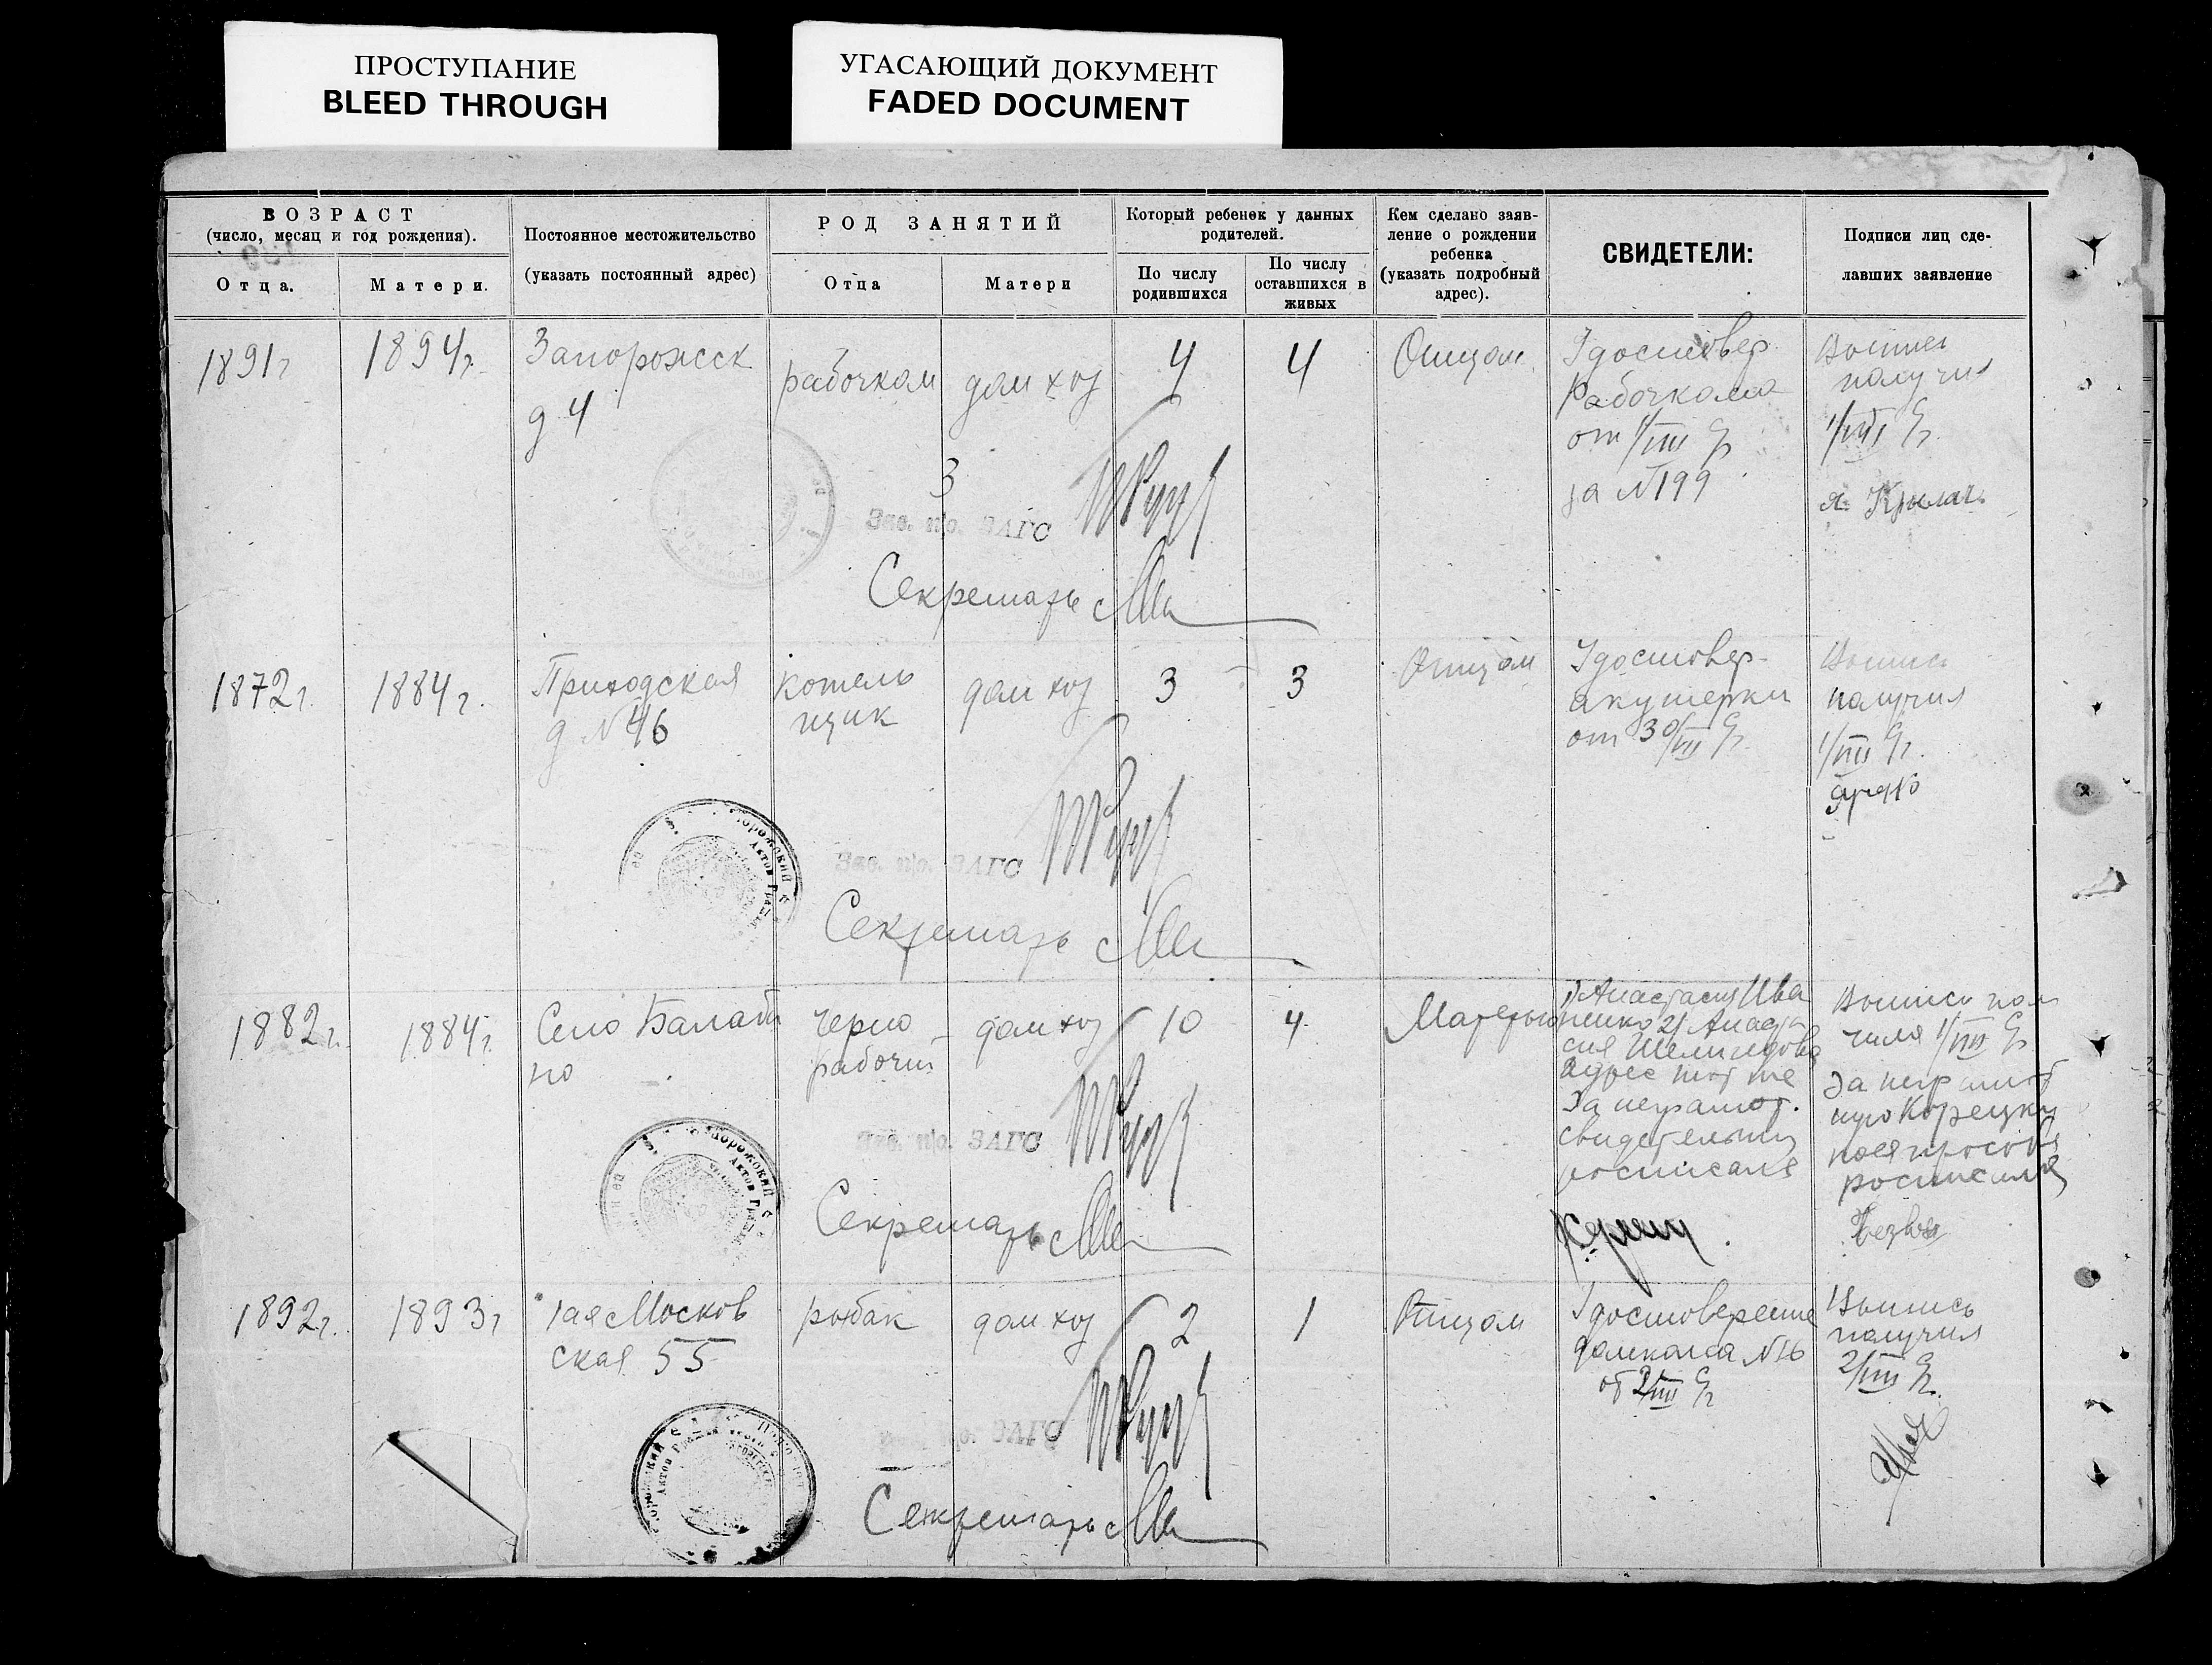 ПРОСТУПАНИЕ
BLEED THROUGH
УГАСАЮЩИЙ ДОКУМЕНТ
FADED DOCUMENT
ВОЗРАСТ
(число, месяц и год рождения).
Отца.
Матери.
Постоянное местожительство
(указать постоянный адрес)
РОД ЗАНЯТИЙ
Отца
Матери
Который ребенок у данных
родителей.
По числу
родившихся
По числу
оставшихся в
живых
Кем сделано заяв-
ление о рождении
ребенка
(указать подробный
адрес).
СВИДЕТЕЛИ:
Подписи лиц сде-
лавших заявление
1891г
1894г.
Запорожск
д 4
рабочком
дом хоз
4
4
Отцом
Удостовер
Рабочкома
от 1/VIII
за №199
Выпись
получил
1/VIII
я.
3
Зав. п/о. ЗАГС
Секретарь
1872г.
1884г.
Приходская
д №46
котель
щик
дом хоз
3
3
Отцом
Удостовер-
акушерки
от 30/VII
Выпись
получил
1/VIII
Зав. п/о. ЗАГС
Секретарь
1882г.
1884г.
Село Балаби
но
черно
рабочий
дом хоз
10
4
Матерью
1) Анастасия Ива
ненко 2) Анаста
сия
адрес тот же
За неграмот.
свидетельниц
росписался
Выпись полу
чила 1/VIII
За неграмот
ную Корецкую
по её просьбе
росписался
Зав. п/о. ЗАГС
Секретарь
1892г.
1893г
1ая Москов
ская 55
рыбак
дом хоз
2
1
Отцом
Удостоверение
домкома №16
от 2/VIII
Выпись
получил
2/VIII
ЗАГС
Секретарь